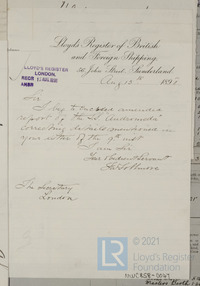 Lloyd's Register of British
and Foreign Shipping.
John Street, Sunderland.
Aug 10th 1897
LLOYD'S REGISTER
LONDON.
RECD
Sir
I beg to enclose amended
report of the SS "Andromeda"
correcting details mentioned in
your letter of the 9th inst
I am Sir
Your Obedient Servant
The Secretary
London
© 2021
Lloyd's Register
Foundation